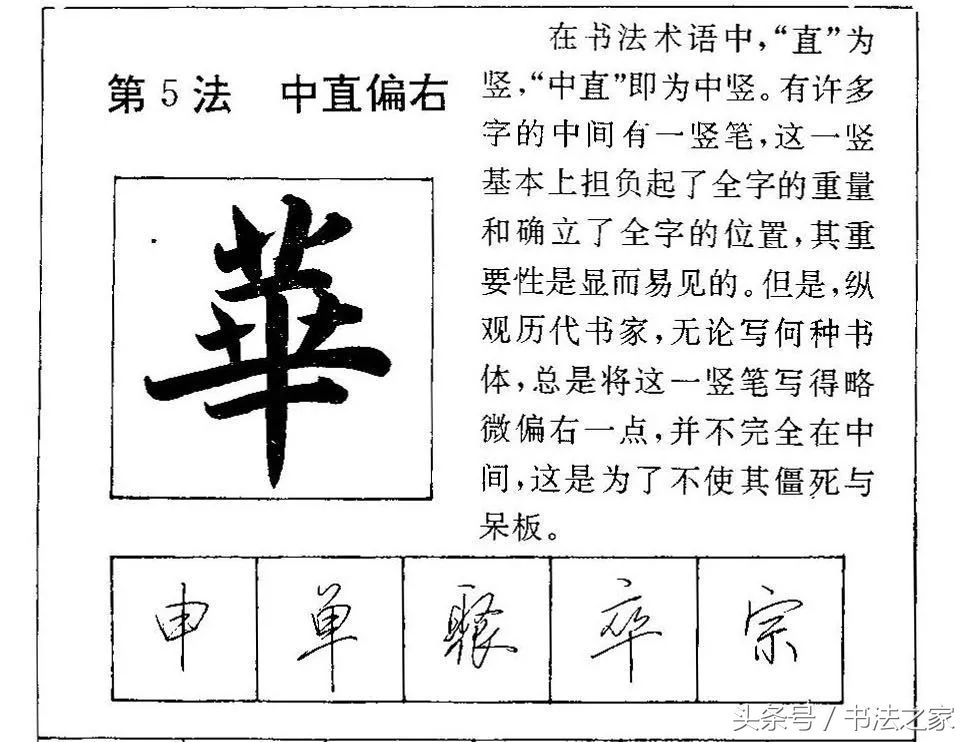 第5法 中直偏右
華
在书法术语中，“直”为
竖，“中直”即为中竖。有许多
字的中间有一竖笔，这一竖
基本上担负起了全字的重量
和确立了全字的位置，其重
要性是显而易见的。但是，纵
观历代书家，无论写何种书
体，总是将这一竖笔写得略
微偏右一点，并不完全在中
间，这是为了不使其僵死与
呆板。
申 单 聚 卒 宗
头条号 / 书法之家